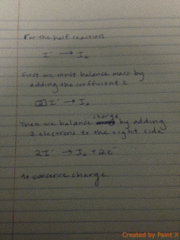 For the half reaction
I⁻ → I₂
First we must balance mass by
adding the coefficient 2
② I⁻ → I₂
Then we balance charge by adding
2 electrons to the right side
2I⁻ → I₂ + 2e⁻
to balance charge
Created by Paint X